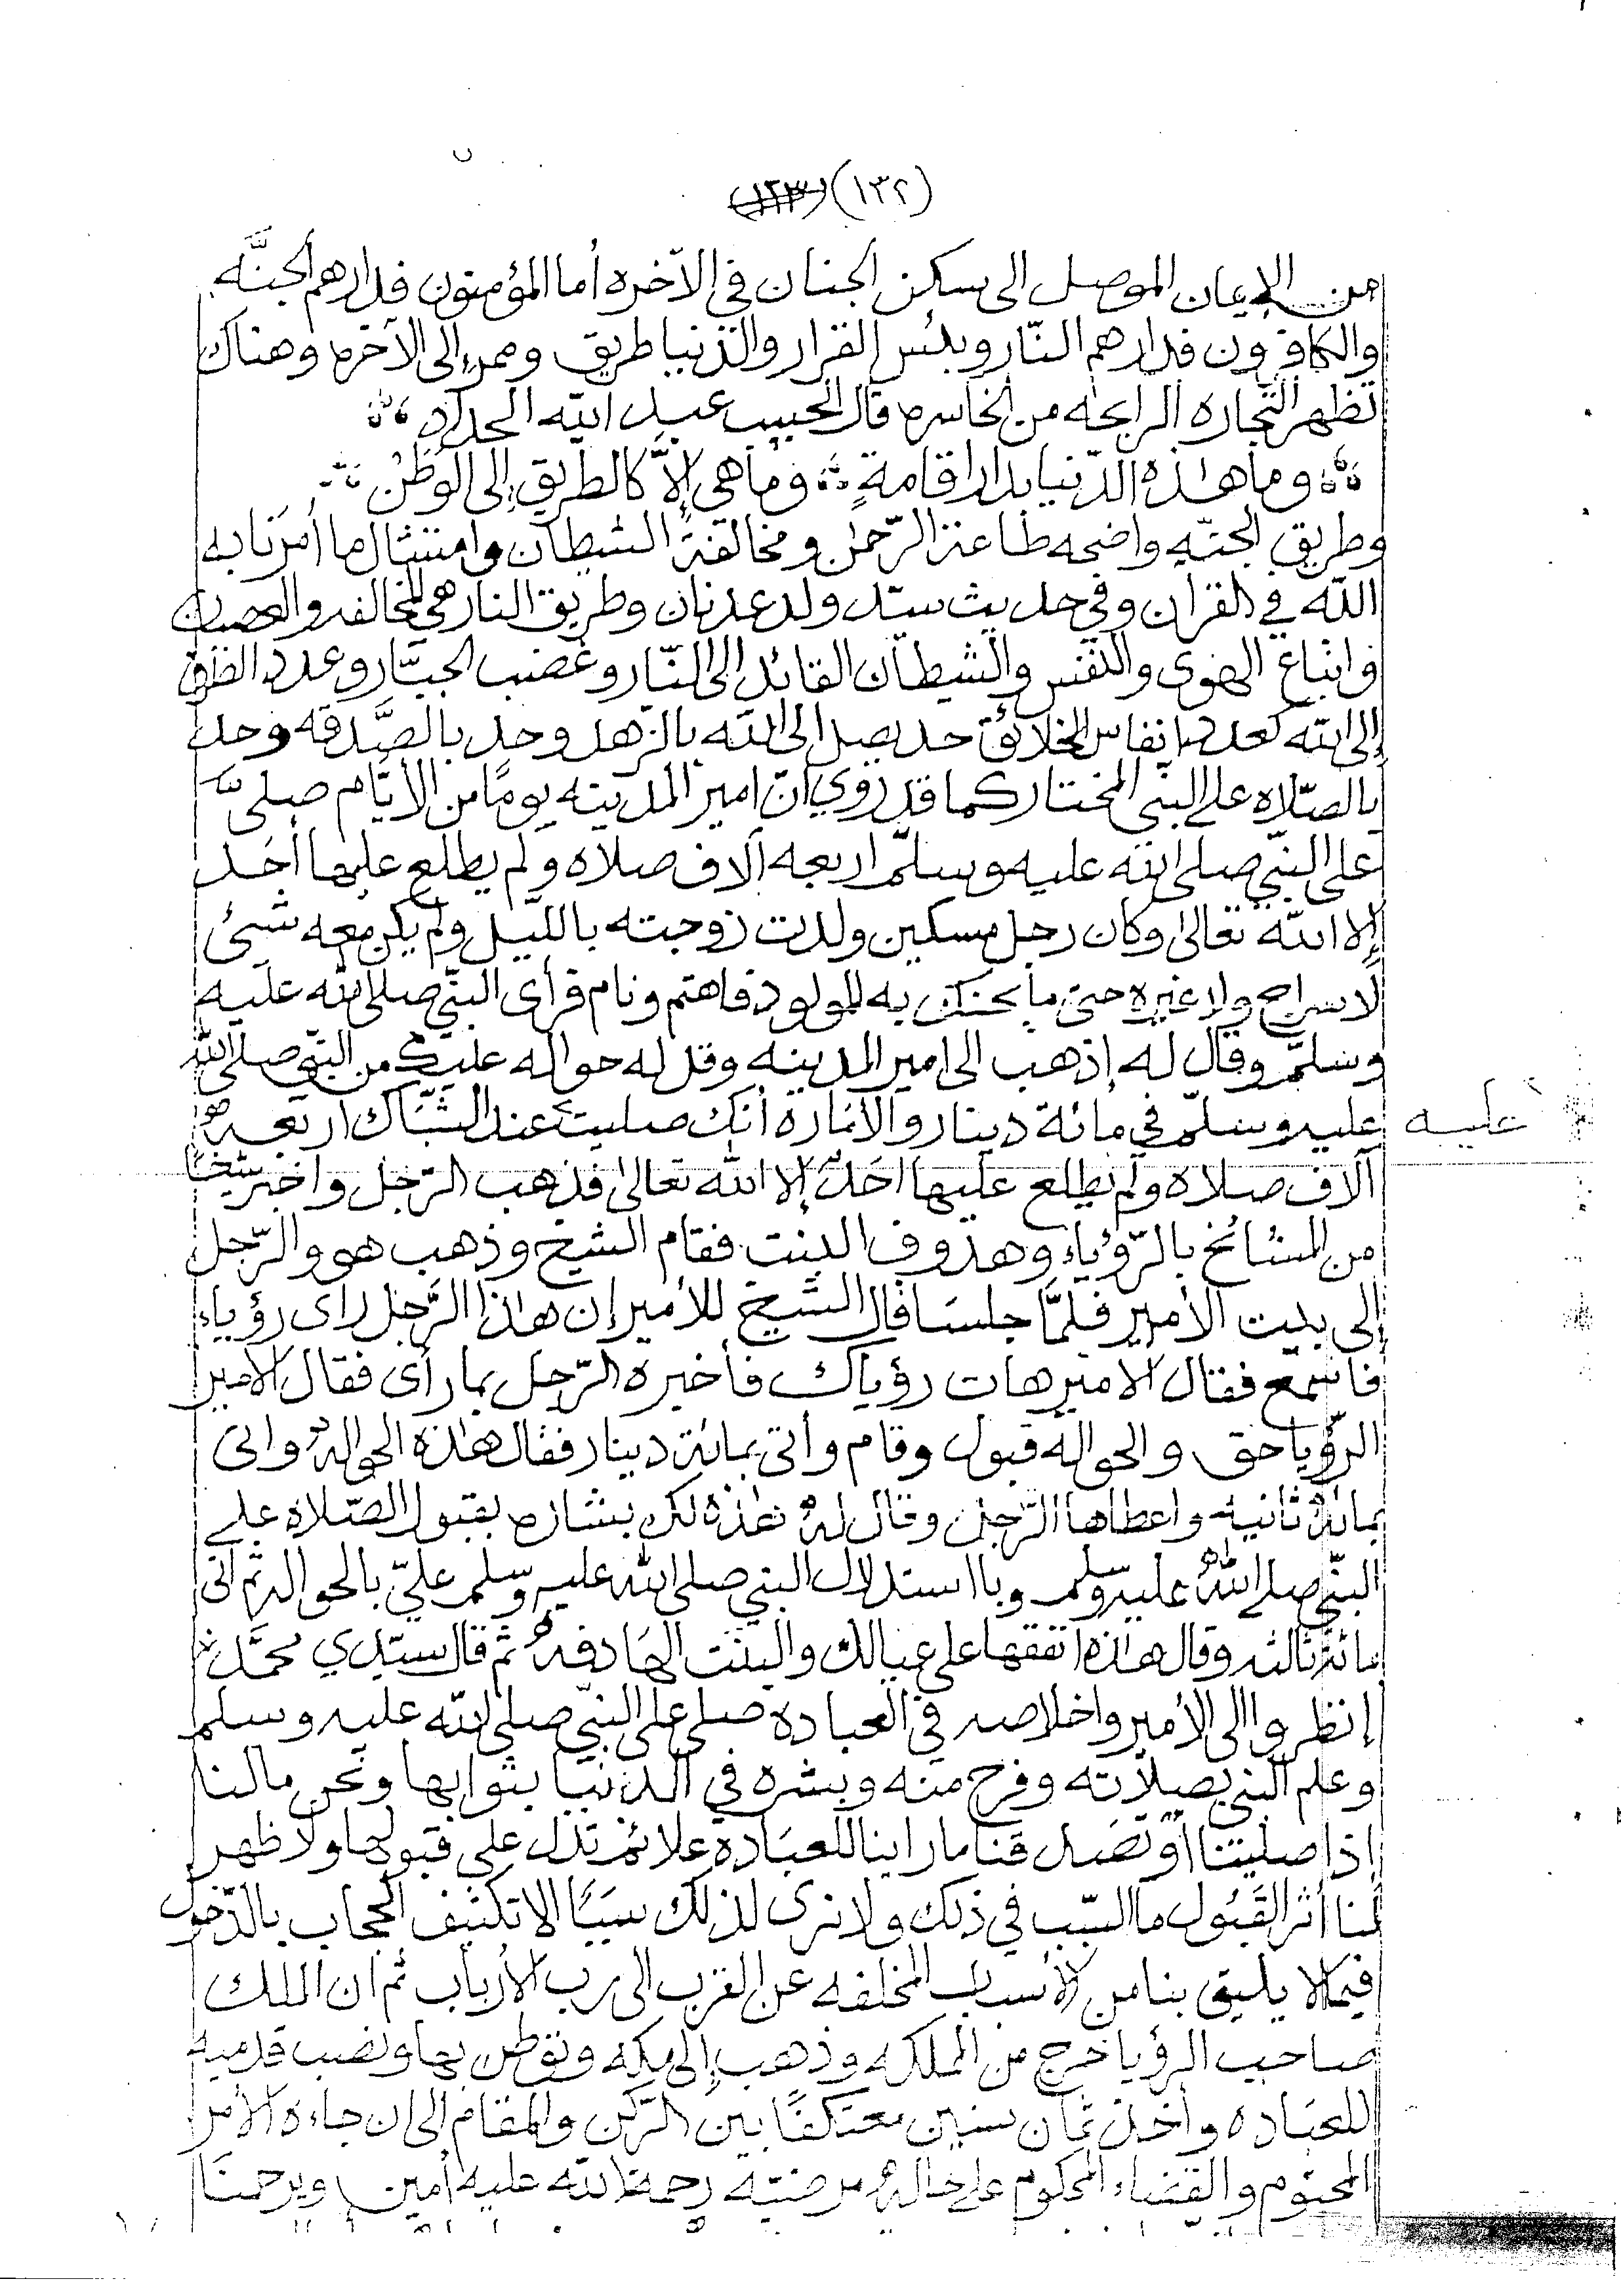 (١٣٢)
من الإيمان الموصل الى سكن الجنان في الآخره أما المؤمنون فدارهم الجنَّه
والكافرون فدارهم النّار وبئس القرار والدّنيا طريق وممر إلى الآخره وهناك
تظهر التّجاره الرابحه من الخاسره قال الحبيب عبد الله الحداد
وما هٰذه الدّنيا بدار اقامةٍ وما هي إلاَّ كالطريق إلى الوطن
وطريق الجنّه واضحه طاعة الرّحمٰن ومخالفة الشيطان وامتثال ما أمرنا به
اللّه في القرآن وفي حديث سيّد ولد عدنان وطريق النار هي المخالفه والعصيان
واتباع الهوى والنّفس والشيطان القائد إلى النّار وغضب الجبّار وعدد الطرق
إلى اللّه كعدد انفاس الخلائق حد يصل الى اللّه بالزهد وحد بالصَّدقه وحد
بالصّلاه على النبّي المختار كما قد روي أنّ امير المدينه يومًا من الأيّام صلى
على النبّي صلى اللّه عليه وسلّم اربعه آلاف صلاه ولم يطلع عليها أحَد
إلا اللّه تعالى وكان رجل مسكين ولدت زوجته بالليل ولم يكن معه شئ
لا سراج ولا غيره حتى ما يحنك به المولود فاهتم ونام فرأى النبّي صلى اللّه عليه
وسلّم وقال له إذهب الى امير المدينه وقل له حواله عليك من النبّي صلى اللّه
عليه وسلّم في مائة دينار والأماره أنك صليت عند الشبّاك اربعه
عليه
آلاف صلاه ولم يطلع عليها أحَد إلا اللّه تعالى فذهب الرّجل واخبر شيخًا
من المشائخ بالرّؤياء وهذوف البنت فقام الشيخ وذهب هو والرّجل
إلى بيت الأمير فلمّا جلسَا قال الشّيخ للأمير إن هٰذا الرَّجل رأى رؤياء
فاسمع فقال الامير هات رؤياك فأخبره الرّجل بما رأى فقال الامير
الرّؤيا حق والحواله قبول وقام وأتى بمائة دينار فقال هٰذه الحواله وأتى
بمائة ثانية واعطاها الرّجل وقال له هٰذه لك بشاره بقبول الصّلاه على
النبّي صلى اللّه عليه وسلم وبا استدلال النبي صلى اللّه عليه وسلم عليّ بالحواله ثم اتى
مائة ثالثه وقال هٰذه انفقها على عيالك والبنت الهَادفه ثم قال سيّدي محمَّد
إنظروا الى الأمير واخلاصه في العباده صلى على النبّي صلى اللّه عليه وسلم
وعلم النبي بصلاته وفرح منه وبشره في الدنيا بثوابها ونحن مالنا
إذا صلينا أو تصَدقنا ما راينا للعبَاده علائم تدل على قبولها ولا ظهر
لنا أثر القَبُول ما السّبب في ذلك ولا نرى لذلك سبَبًا الا تكثيف الحجاب بالدّخول
فيما لا يليق بنا من الأسباب المخلفه عن القرب الى رب الأرباب ثم ان الملك
صاحب الرؤيا خرج من المملكه وذهب إلى مكه وتوطن بها ونصب قدميه
للعبَاده وأخذ ثمان سنين معتكفًا بين الرّكن والمقام الى ان جاءه الأمر
المحتوم والقضاء المحكوم على حاله مرضيّه رحمة اللّه عليه أمين ويرحمنَا